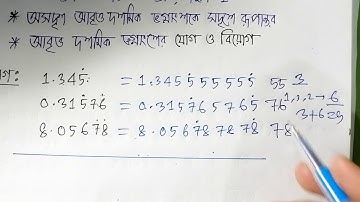 * অসদৃশ আবৃত দশমিক ভগ্নাংশকে সদৃশে রূপান্তর
* আবৃত্ত দশমিক ভগ্নাংশের যোগ ও বিয়োগ
গ: 1.345̇ = 1.345555555̇ 55 3
0.31̇576̇ = 0.315765765̇ 76 1,3,2→6
3+6=9
8.056̇78̇ = 8.056787878̇ 78